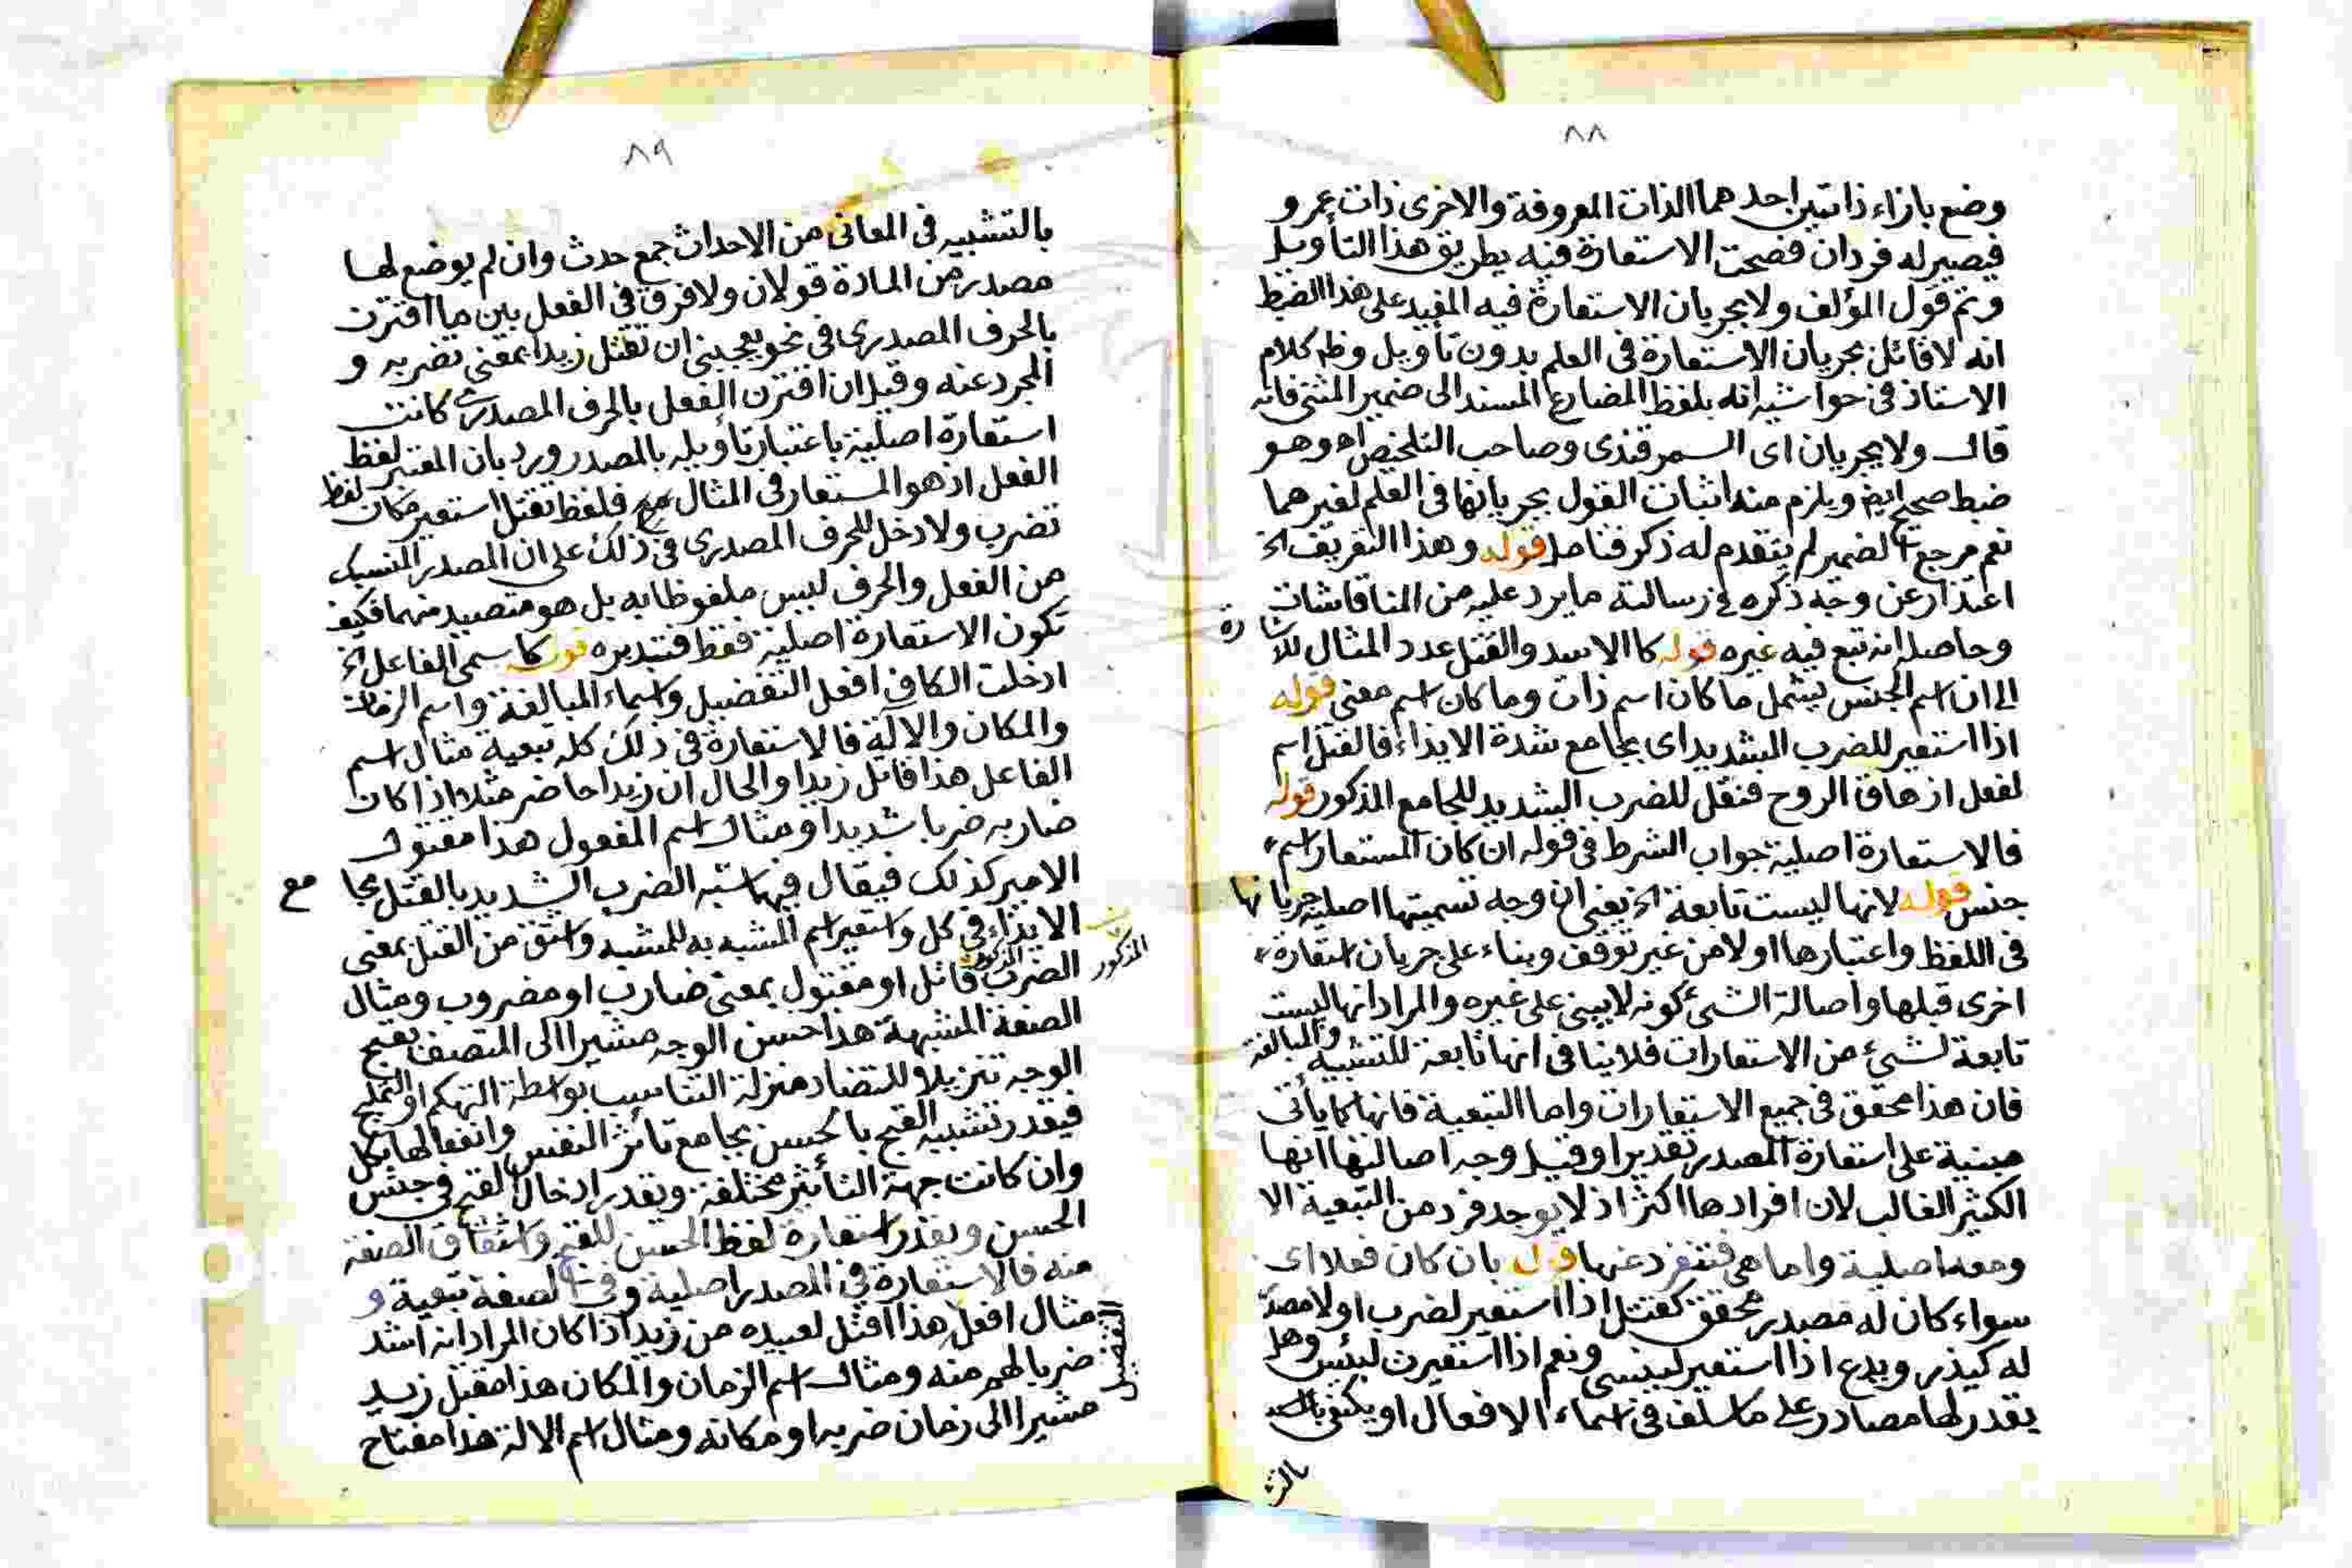 ٨٨
وضع بازاء ذاتين احدهما الذات المعروفة والاخرى ذات عمرو
فيصير له فردان فصحت الاستعارة فيه بطريق هذا التأويل
وتم قول المؤلف ولا يجريان الاستعارة فيه المفيد على هذا الضبط
انه لا قائل بجريان الاستعارة في العلم بدون تأويل وظ كلام
الاستاذ في حواشيه انه بلفظ المضارع المسند الى ضمير المثنى فانه
قال ولا يجريان اى السمرقندى وصاحب التلخيص اه وهو
ضبط صحيح ايض ويلزم منه اثبات القول بجريانها في العلم لغيرهما
نعم مرجع الضمير لم يتقدم له ذكر فتامل قوله وهذا التعريف الخ
اعتذار عن وجه ذكره في رسالته ما يرد عليه من المناقاشات
وحاصله انه تبع فيه غيره قوله كا الاسد والقتل عدد المثال للاشارة
الى ان اسم الجنس يشمل ما كان اسم ذات وما كان اسم معنى قوله
اذا استعير للضرب الشديد اى بجامع شدة الايذاء فالقتل اسم
لفعل ازهاق الروح فنقل للضرب الشديد للجامع المذكور قوله
فالاستعارة اصلية جواب الشرط في قوله ان كان المستعار اسم
جنس قوله لانها ليست تابعة الخ يعنى ان وجه تسميتها اصلية جريانها
في اللفظ واعتبارها اولا من غير توقف وبناء على جريان استعارة
اخرى قبلها واصالة الشئ كونه لا يبنى على غيره والمراد انها ليست
تابعة لشئ من الاستعارات فلا ينافى انها تابعة للتشبيه والمبالغة
فان هذا محقق في جميع الاستعارات واما التبعية فانها كما يأتى
مبنية على استعارة المصدر تقديرا وقيل وجه اصالتها انها
الكثير الغالب لان افرادها اكثر اذ لا يوجد فرد من التبعية الا
ومعه اصلية واما هي فتنفرد عنها قوله بان كان فعلا اى
سواء كان له مصدر محقق كقتل اذا استعير لضرب او لا مصدر
له كيذر ويدع اذا استعير لينسى ونعم اذا استعيرت لبئس وهل
يقدر لها مصادر على ما سلف في اسماء الافعال او يكتفى
٨٩
بالتشبيه في المعانى من الاحداث جمع حدث وان لم يوضع لها
مصدر من المادة قولان ولا فرق في الفعل بين ما اقترن
بالحرف المصدرى في نحو يعجبنى ان تقتل زيدا بمعنى تضربه و
المجرد عنه وقيل ان اقترن الفعل بالحرف المصدرى كانت
استعارة اصلية باعتبار تاويله بالمصدر ورد بان المعتبر لفظ
الفعل اذ هو المستعار في المثال فلفظ تقتل استعير مكان لفظ
تضرب ولا دخل للحرف المصدرى في ذلك على ان المصدر المنسبك
من الفعل والحرف ليس ملفوظا به بل هو متصيد منهما فكيف
تكون الاستعارة اصلية فقط فتدبره قوله كاسمى الفاعل الخ
ادخلت الكاف افعل التفضيل واسماء المبالغة واسم الزمان
والمكان والالة فالاستعارة في ذلك كله تبعية مثال اسم
الفاعل هذا قاتل زيدا والحال ان زيدا حاضر مثلا اذا كان
ضاربه ضربا شديدا ومثال اسم المفعول هذا مقتول
الامير كذلك فيقال فيها شبه الضرب الشديد بالقتل بجامع
الايذاء في كل واستعير اسم المشبه به للمشبه واشتق من القتل بمعنى
الضرب المذكور قاتل او مقتول بمعنى ضارب او مضروب ومثال
المذكور
الصفة المشبهة هذا حسن الوجه مشيرا الى المتصف بقبح
الوجه تنزيلا للتضاد منزلة التناسب بواسطة التهكم او التمليح
فيقدر تشبيه القبح بالحسن بجامع تأثر النفس وانفعالها بكل
وان كانت جهة التأثير مختلفة ويقدر ادخال القبح في جنس
الحسن ويقدر استعارة لفظ الحسن للقبح واشتقاق الصفة
منه فالاستعارة في المصدر اصلية وفي الصفة تبعية و
مثال افعل التفضيل هذا اقتل لعبيده من زيد اذا كان المراد انه اشد
ضربا لهم منه ومثال اسم الزمان والمكان هذا مقتل زيد
مشيرا الى زمان ضربه او مكانه ومثال اسم الالة هذا مفتاح